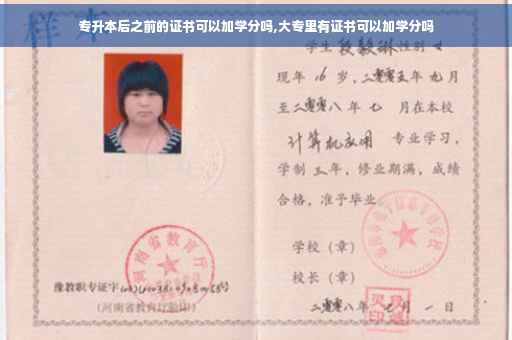 专升本后之前的证书可以加学分吗,大专里有证书可以加学分吗
样本
学生段毅琳性别女
现年16岁,二零零五年九月
至二零零八年七月在本校
计算机应用 专业学习,
学制三年,修业期满,成绩
合格,准予毕业。
学校(章)
校长(章)
二零零八年七月一日
河南省教育厅
豫教职专证字
(河南省教育厅验印)